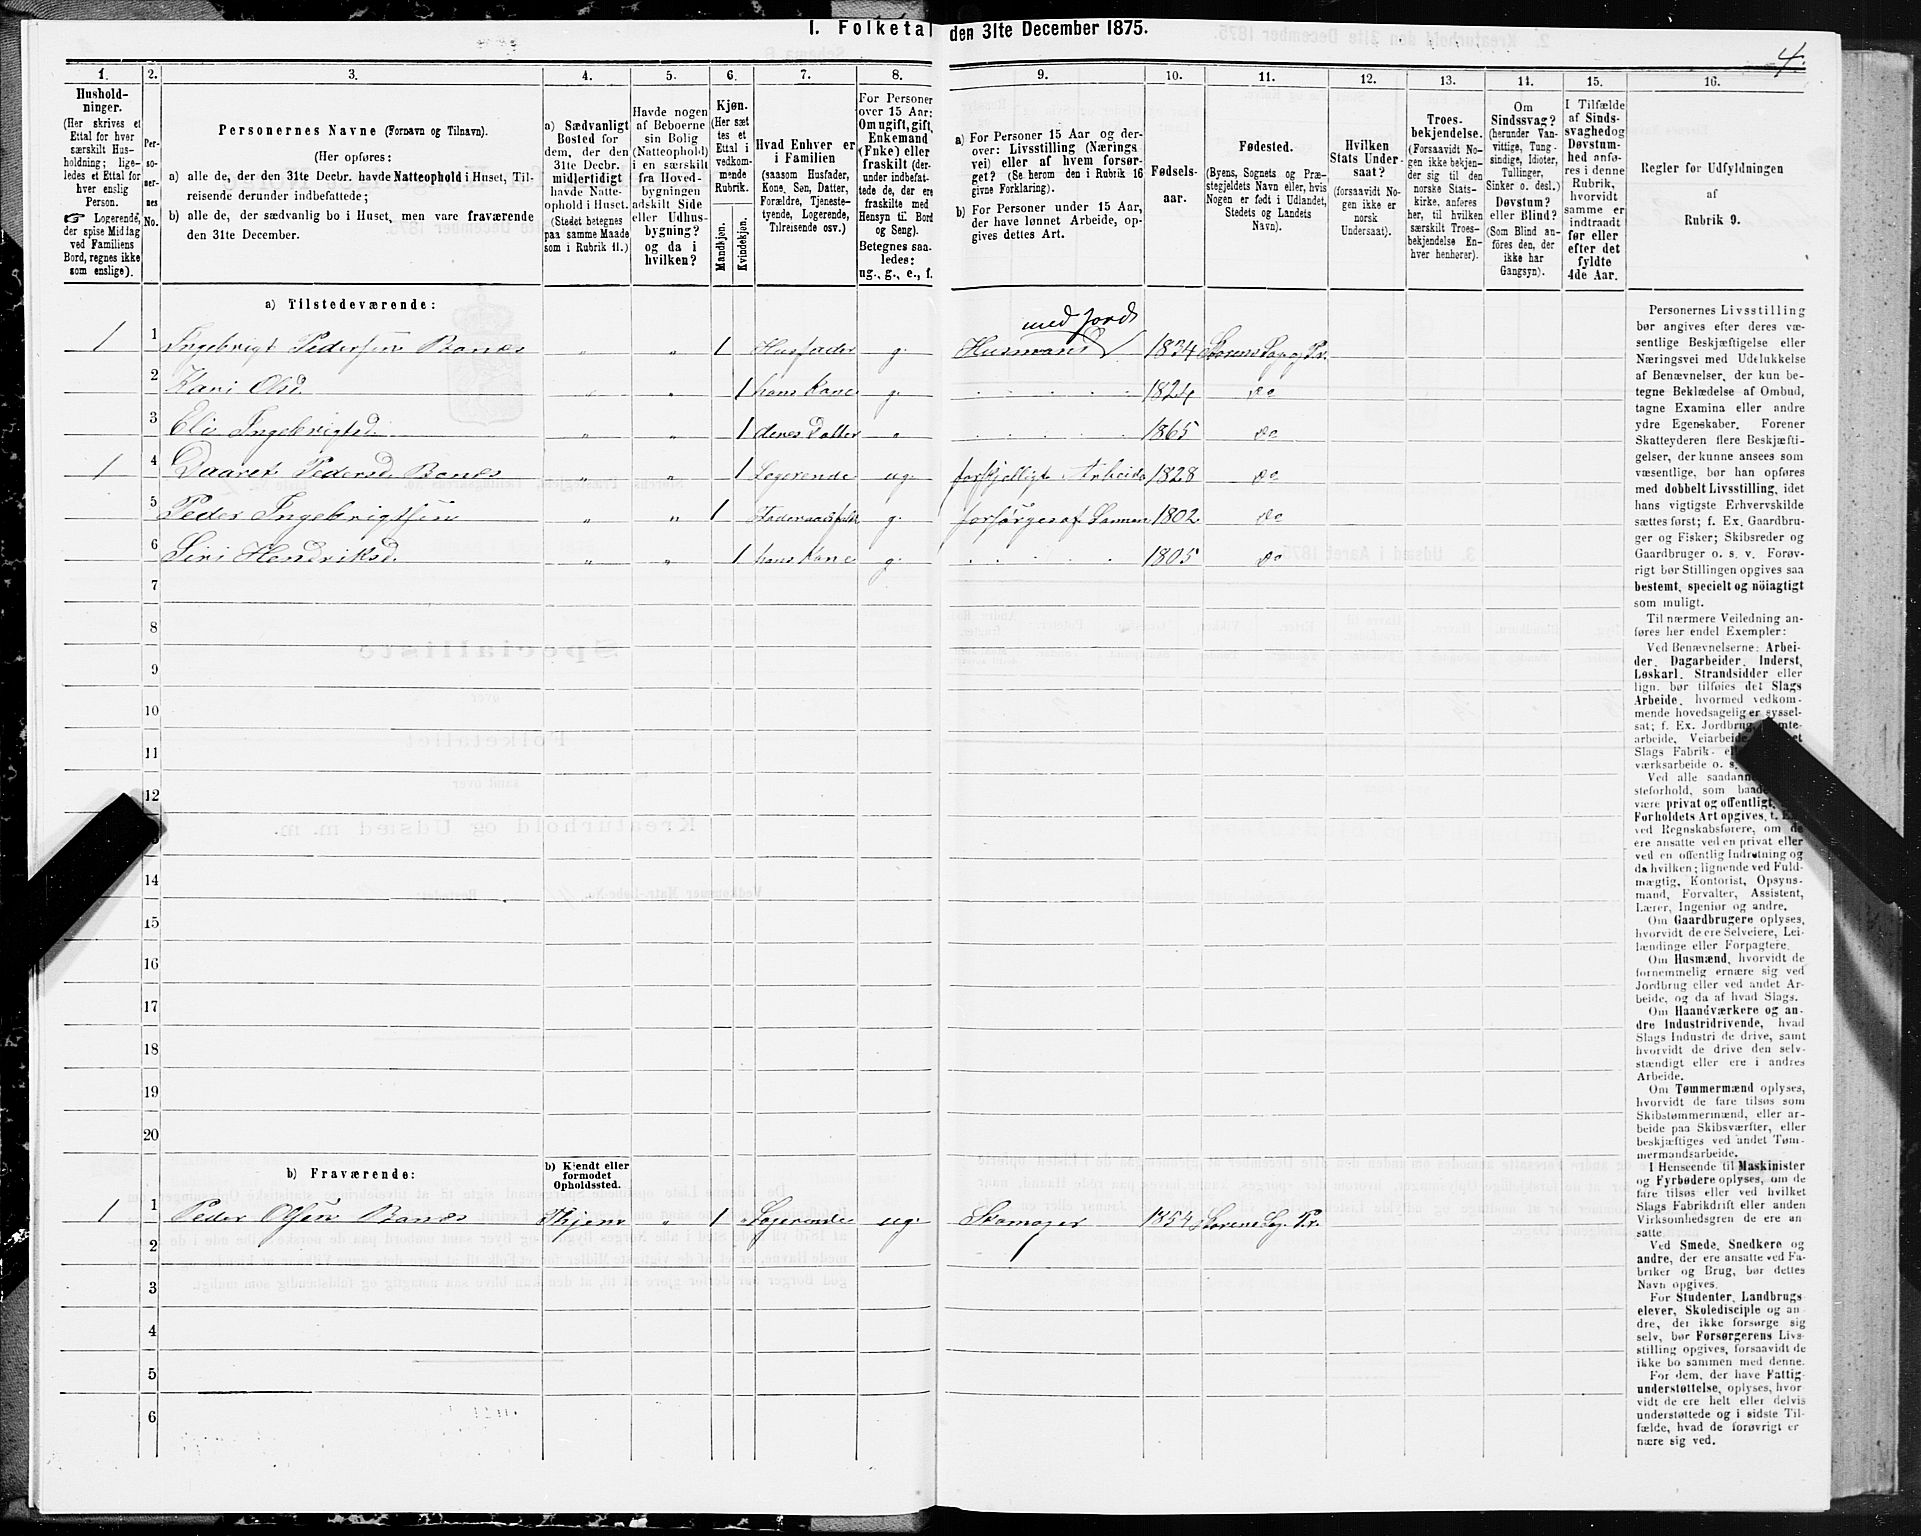 I. Folketal den 31te December 1875.
4.
1. 2. 3. 4. 5. 6. 7. 8. 9. 10. 11. 12. 13. 14. 15. 16.
Hushold-
ninger.
(Her skrives et
Ettal for hver
særskilt Hus-
holdning; lige-
ledes et Ettal for
hver enslig
Person.
☞ Logerende,
der spise Middag
ved Familiens
Bord, regnes ikke
som enslige).
Per-
so-
ner-
nes
No.
Personernes Navne (Fornavn og Tilnavn).
(Her opføres:
a) alle de, der den 31te Decbr. havde Natteophold i Huset, Til-
reisende derunder indbefattede;
b) alle de, der sædvanlig bo i Huset, men vare fraværende
den 31te December.
a) Sædvanligt
Bosted for
dem, der den
31te Decbr.
midlertidigt
havde Natte-
ophold i Huset.
(Stedet betegnes
paa samme Maade
som i Rubrik 11.)
Havde nogen
af Beboerne
sin Bolig
(Natteophold)
i en særskilt
fra Hoved-
bygningen
adskilt Side
eller Udhus-
bygning?
og da i
hvilken?
Kjøn.
(Her sæt-
tes et
Ettal i
vedkom-
mende
Rubrik.
Mandkjøn.
Kvindekjøn.
Hvad Enhver er
i Familien
(saasom Husfader,
Kone, Søn, Datter,
Forældre, Tjeneste-
tyende, Logerende,
Tilreisende osv.)
For Personer
over 15 Aar:
Om ugift, gift,
Enkemand
(Enke) eller
fraskilt (der-
under indbefat-
tede de, der ere
fraskilte med
Hensyn til Bord
og Seng).
Betegnes saa-
ledes:
ug., g., e., f.
a) For Personer 15 Aar og der-
over: Livsstilling (Nærings
vei) eller af hvem forsør-
get? (Se herom den i Rubrik 16
givne Forklaring).
b) For Personer under 15 Aar,
der have lønnet Arbeide, op-
gives dettes Art.
Fødsels-
aar.
Fødested.
(Byens, Sognets og Præ-
stegjeldets Navn eller, hvis
Nogen er født i Udlandet,
Stedets og Landets
Navn).
Hvilken
Stats Under-
saat?
(forsaavidt No-
gen ikke er
norsk
Undersaat).
Troes-
bekjendelse.
(Forsaavidt No-
gen ikke bekjen-
der sig til den
norske Stats-
kirke, anføres
her, til hvilken
særskilt Troes-
bekjendelse En-
hver henhører).
Om
Sindssvag?
(herunder Van-
vittige, Tung-
sindige, Idioter,
Tullinger,
Sinker o. desl.)
Døvstum?
eller Blind?
(Som Blind an-
føres den, der
ikke har
Gangsyn).
I Tilfælde
af Sinds-
svaghed og
Døvstum-
hed anfø-
res i denne
Rubrik,
hvorvidt
samme er
indtraadt
før eller
efter det
fyldte
4de Aar.
Regler for Udfyldningen
af
Rubrik 9.
a) Tilstedeværende:
med Jord
1 1 Ingebrigt Pedersen Banes " " 1 Husfader g. Husmand 1834 Størens Sog og Pr.
2 Kari Olsd. " " 1 hans Kone g. 1824 do
3 Eli Ingebrigtsd. " " 1 deres Datter " 1865 do
1 4 Maaret Pedersd. Banes " " 1 Logerende ug. forskjelligt Arbeide 1828 do
5 Peder Ingebrigtsen " " 1 g. forsørges af Sønnen 1802 do
6 Siri Hendriksd. " " 1 hans Kone g. 1805 do
7
8
9
10
11
12
3
14
15
16
17
18
19
20
b) Fraværende:
b) Kjendt eller
formodet
Opholdssted.
1 1 Peder Olsen Banes " 1 Logerende ug. Skomager 1854 Størens Sog. Pr.
2
3
4
5
6
Personernes Livsstilling
bør angives efter deres væ-
sentlige Beskjæftigelse eller
Næringsvei med Udelukkelse
af Benævnelser, der kun be-
tegne Beklædelse af Ombud,
tagne Examina eller andre
ydre Egenskaber. Forener
Skatteyderen flere Beskjæfti-
gelser, der kunne ansees som
væsentlige, bør han opføres
med dobbelt Livsstilling, idet
hans vigtigste Erhvervskilde
sættes først; f. Ex. Gaardbru-
ger og Fisker; Skibsreder og
Gaardbruger o. s. v. Forøv-
rigt bør Stillingen opgives saa
bestemt, specielt og nöiagtigt
som muligt.
Til nærmere Veiledning an-
føres her endel Exempler:
Ved Benævnelserne: Arbei-
der, Dagarbeider, Inderst,
Løskarl, Strandsidder eller
lign. bør tilføies det Slags
Arbeide, hvormed vedkom-
mende hovedsagelig er syssel-
sat; f. Ex. Jordbrug,
arbeide, Veiarbeide,
Slags Fabrik-
værksarbeide o. s.
Ved alle saadan
steforhold, som baade
være privat og offentligt,
Forholdets Art opgives, t. Ex.
ved Regnskabsførere, om de
ere ansatte ved en privat eller
ved en offentlig Indretning og
da hvilken; lignende ved Fuld-
mægtig, Kontorist, Opsyns-
mand, Forvalter, Assistent,
Lærer, Ingeniør og andre.
Om Gaardbrugere oplyses,
hvorvidt de ere Selveiere, Lei-
lændinge eller Forpagtere.
Om Husmænd, hvorvidt de
fornemmelig ernære sig ved
Jordbrug eller ved andet Ar-
beide, og da af hvad Slags.
Om Haandværkere og an-
dre Industridrivende, hvad
Slags Industri de drive, samt
hvorvidt de drive den selv-
stændigt eller ere i andres
Arbeide.
Om Tømmermænd oplyses,
hvorvidt de fare tilsøs som
Skibstømmermænd, eller ar-
beide paa Skibsværfter, eller
beskjæftiges ved andet Tøm-
mermandsarbeide.
I Henseende til Maskinister
og Fyrbødere oplyses, om de
fare tilsøs eller ved hvilket
Slags Fabrikdrift eller anden
Virksomhedsgren de ere an-
satte.
Ved Smede, Snedkere og
andre, der ere ansatte ved Fa-
briker og Brug, bør dettes
Navn opgives.
For Studenter, Landbrugs-
elever, Skoledisciple og an-
dre, der ikke forsørge sig
selv, bør Forsørgerens Livs-
stilling opgives, forsaavidt de
ikke bo sammen med denne.
For dem, der have Fattig-
understøttelse, oplyses, hvor-
vidt de ere helt eller delvis
understøttede og i sidste Til-
fælde, hvad de forøvrigt er-
nære sig ved.